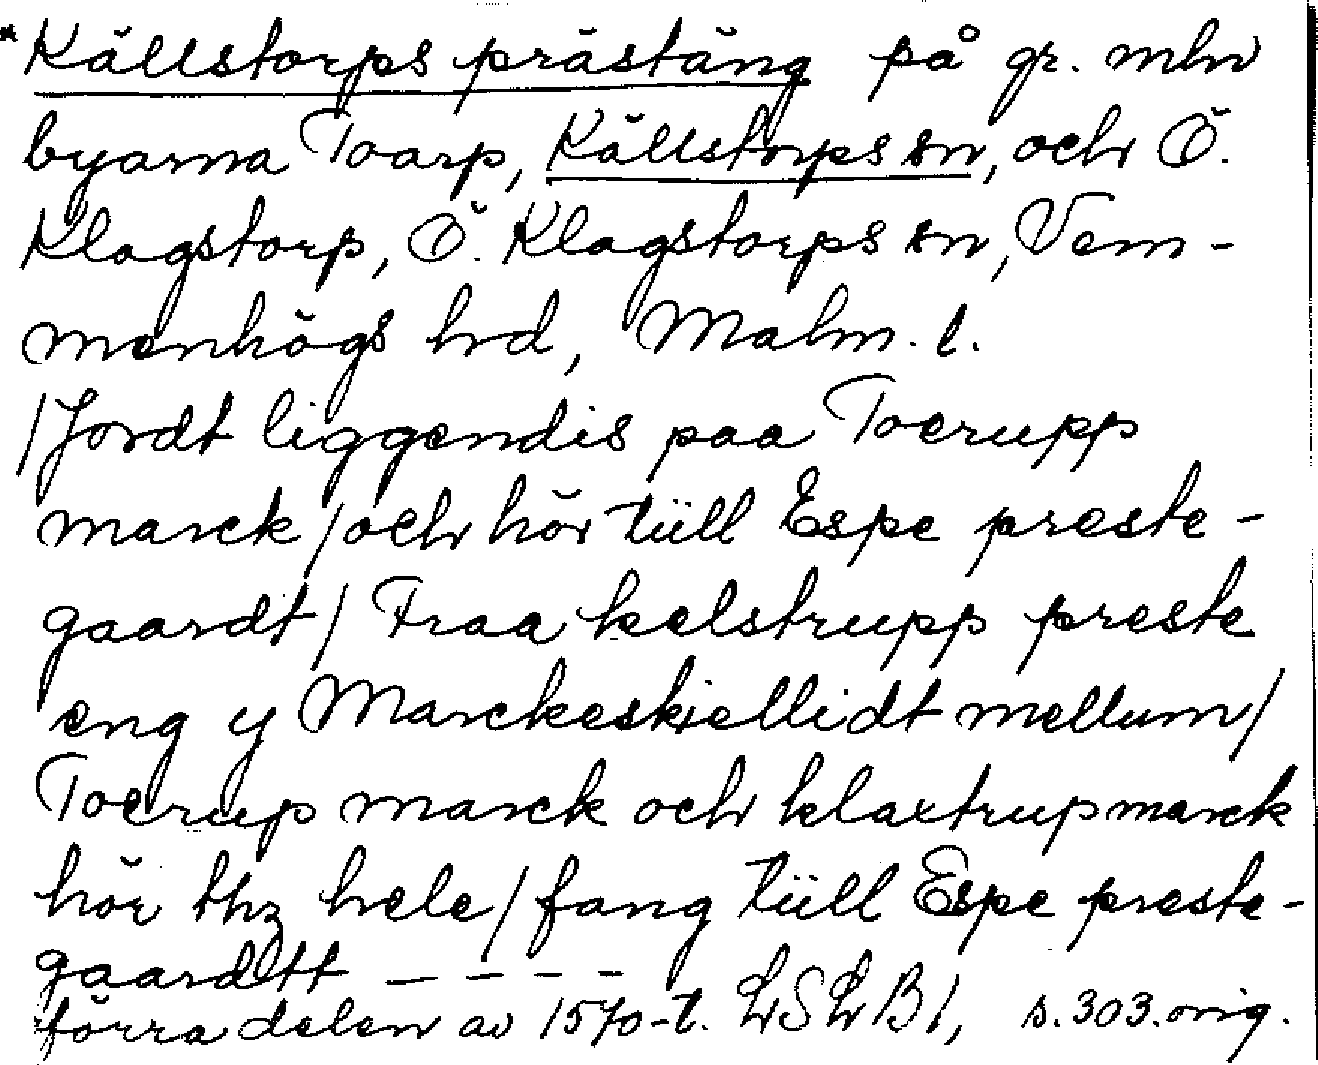 *Källstorps prästäng på gr. mln
byarna Toarp, Källstorps sn, och Ö.
Klagstorp, Ö. Klagstorps sn, Vem-
menhögs hrd, Malm. l.
/Jordt liggendis paa Toerupp
marck/och hör tüll Espe preste-
gaardt/ Fraa kelstrupp preste
eng y Marckeskiellidt mellum/
Toerup marck och klaxtrup marck
hör thz hele/fang tüll Espe preste-
gaardtt - - - -
förra delen av 1570-t. LSLB1, s.303.orig.